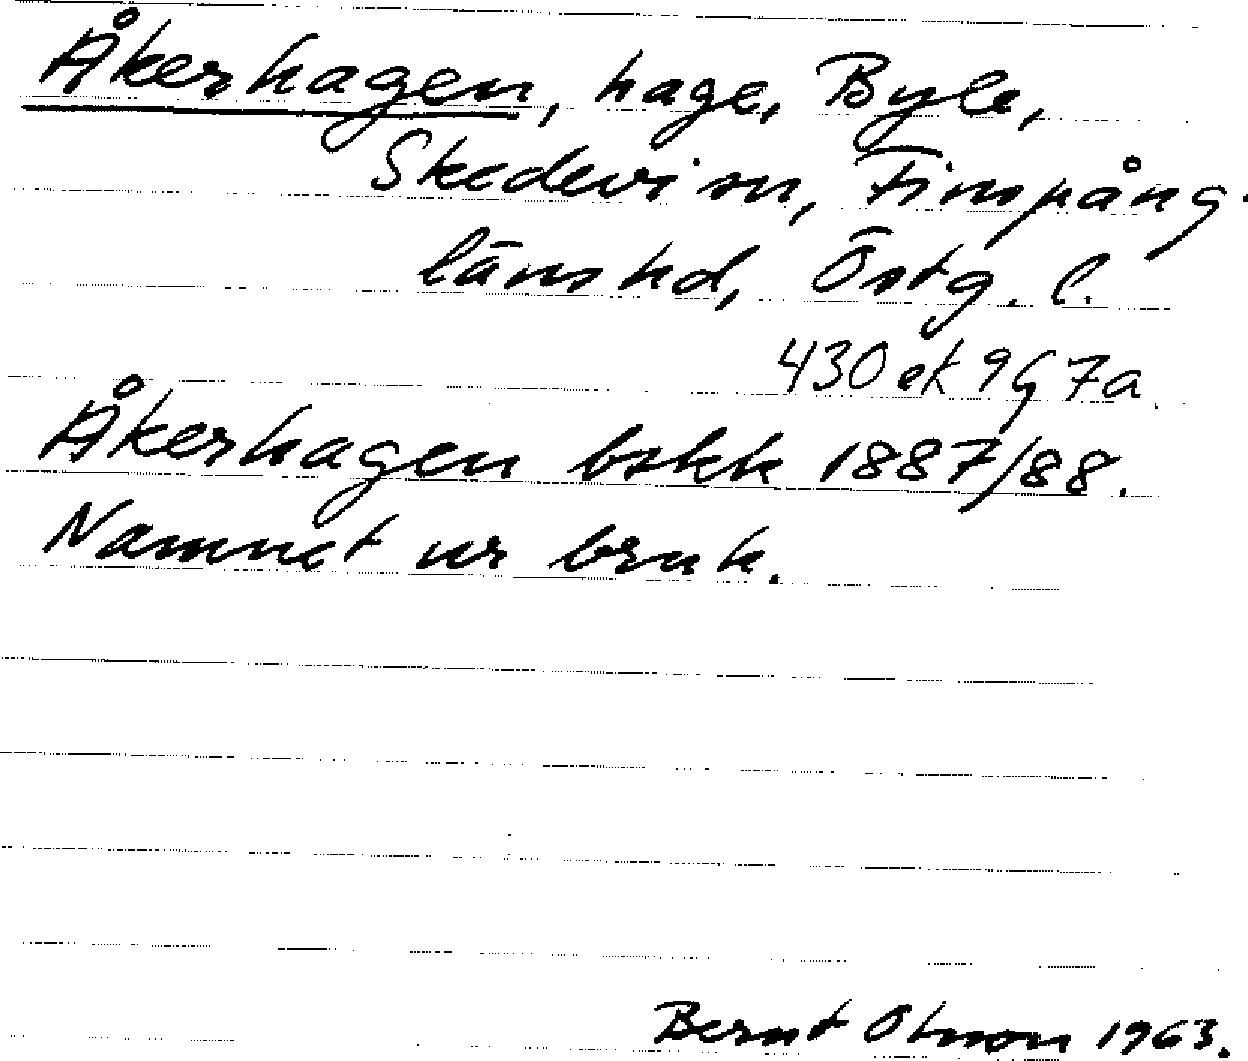 Åkerhagen, hage, Byle,
Skedevi sn, Finspång.
läns hd, Östg. l.
430 ek 9G 7a.
Åkerhagen bskk 1887/88.
Namnet ur bruk.
Bernt Olsson 1963.